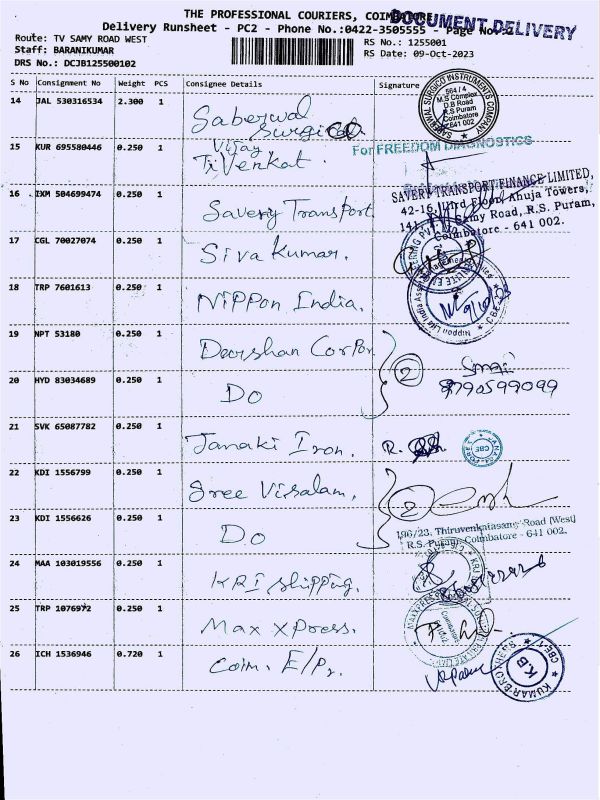 THE PROFESSIONAL COURIERS, COIMBATORE
DOCUMENT DELIVERY
Delivery Runsheet - PC2 - Phone No.:0422-3505555 - Page No.:2
Route: TV SAMY ROAD WEST
RS No.: 1255001
Staff: BARANIKUMAR
RS Date: 09-Oct-2023
DRS No.: DCJB125500102
S No Consignment No Weight PCS Consignee Details Signature
14 JAL 530316534 2.300 1 Saberwal
Surgical
SABERWAL SURGICO INSTRUMENTS COMPANY
564 / 4
M.S Complex
D.B Road
R.S Puram
Coimbatore
641 002
15 KUR 695580446 0.250 1 Vijay,
Venkat.
For FREEDOM DIAGNOSTICS
16 IXM 504699474 0.250 1 Savery Transport
SAVERY TRANSPORT FINANCE LIMITED,
42-16, IIIrd Floor, Ahuja Towers,
Samy Road, R.S. Puram,
Coimbatore - 641 002.
17 CGL 70027074 0.250 1 Siva Kumar.
18 TRP 7601613 0.250 1 Nippon India.
19 NPT 53180 0.250 1 Darshan Corpon
2
20 HYD 83034689 0.250 1 Do
9790599099
21 SVK 65087782 0.250 1 Janaki Iron.
R.
22 KDI 1556799 0.250 1 Sree Visalam,
2
23 KDI 1556626 0.250 1 Do
196/23, Thiruvenkatasamy Road (West)
R.S. Puram, Coimbatore - 641 002.
24 MAA 103019556 0.250 1 KRI Shipping.
25 TRP 1076972 0.250 1 Max Xpress.
26 ICH 1536946 0.720 1 Coim. E/Pr.
KUMAR BROTHERS
KB
CBE-1